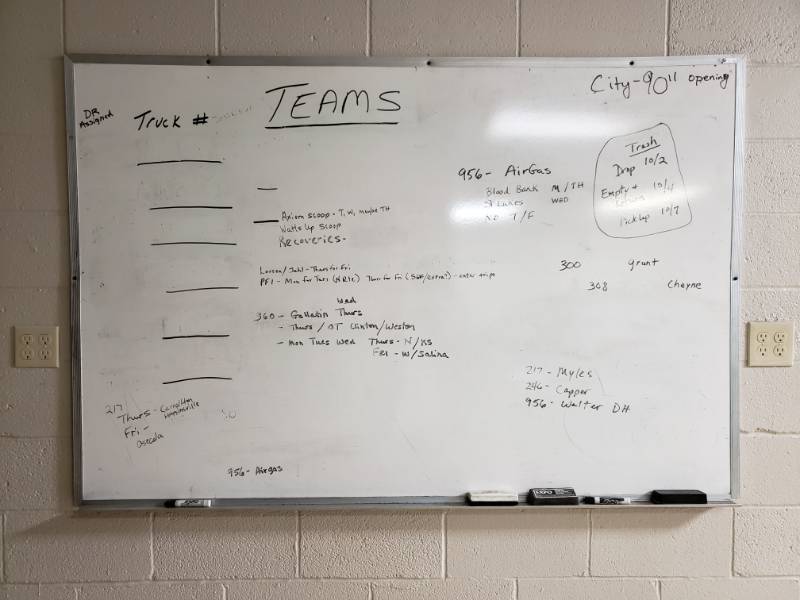 TEAMS
City - 90" opening
DR Assigned
Truck #
Trash
Drop 10/2
Empty + 10/4
Pickup 10/7
956 - AirGas
Blood Bank M/TH
St Lukes WED
T/F
Axiom Scoop - T, W, maybe TH
Watts Up Scoop
Recoveries -
300 grunt
308 Chayne
Larsen/ - Thurs for Fri
PF1 - Mon for Tues Thur for Fri
Wed
360 - Gallatin Thurs
- Thurs / OT Clinton/Weston
- Mon Tues Wed Thurs - N/KS
Fri - W/Salina
217 - Myles
246 - Capper
956 - Walter DH
217
Thurs - Carrollton
Fri -
Osceola
956 - Airgas